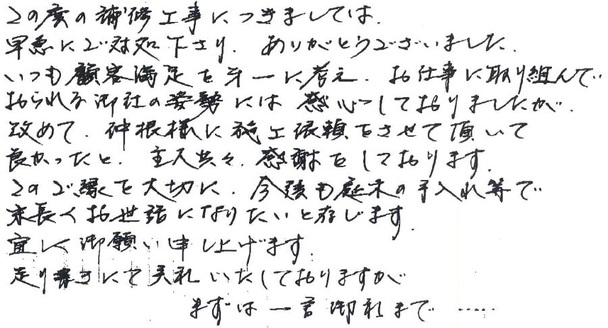 この度の補修工事につきましては、
早急にご対処下さり、ありがとうございました。
いつも顧客満足を第一に考え、お仕事に取り組んで
おられる御社の姿勢には 感心しておりましたが、
改めて、仲根様に施工依頼をさせて頂いて
良かったと、主人共々、感謝をしております。
このご縁を大切に、今後も庭木の手入れ等で
末長くお世話になりたいと存じます。
宜しく御願い申し上げます。
走り書きにて失礼いたしておりますが
まずは一言御礼まで ‥‥‥